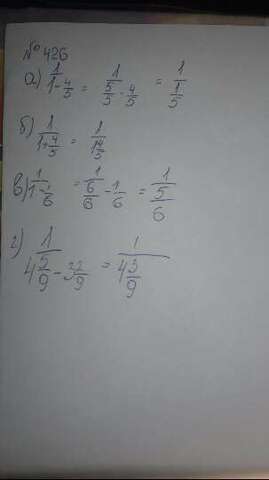 № 426
а) 1/(1-4/5) = 1/(5/5-4/5) = 1/(1/5)
б) 1/(1+4/5) = 1/(1 4/5)
в) 1/(1-1/6) = 1/(6/6-1/6) = 1/(5/6)
г) 1/(4 5/9 - /9) = 1/(4 3/9)